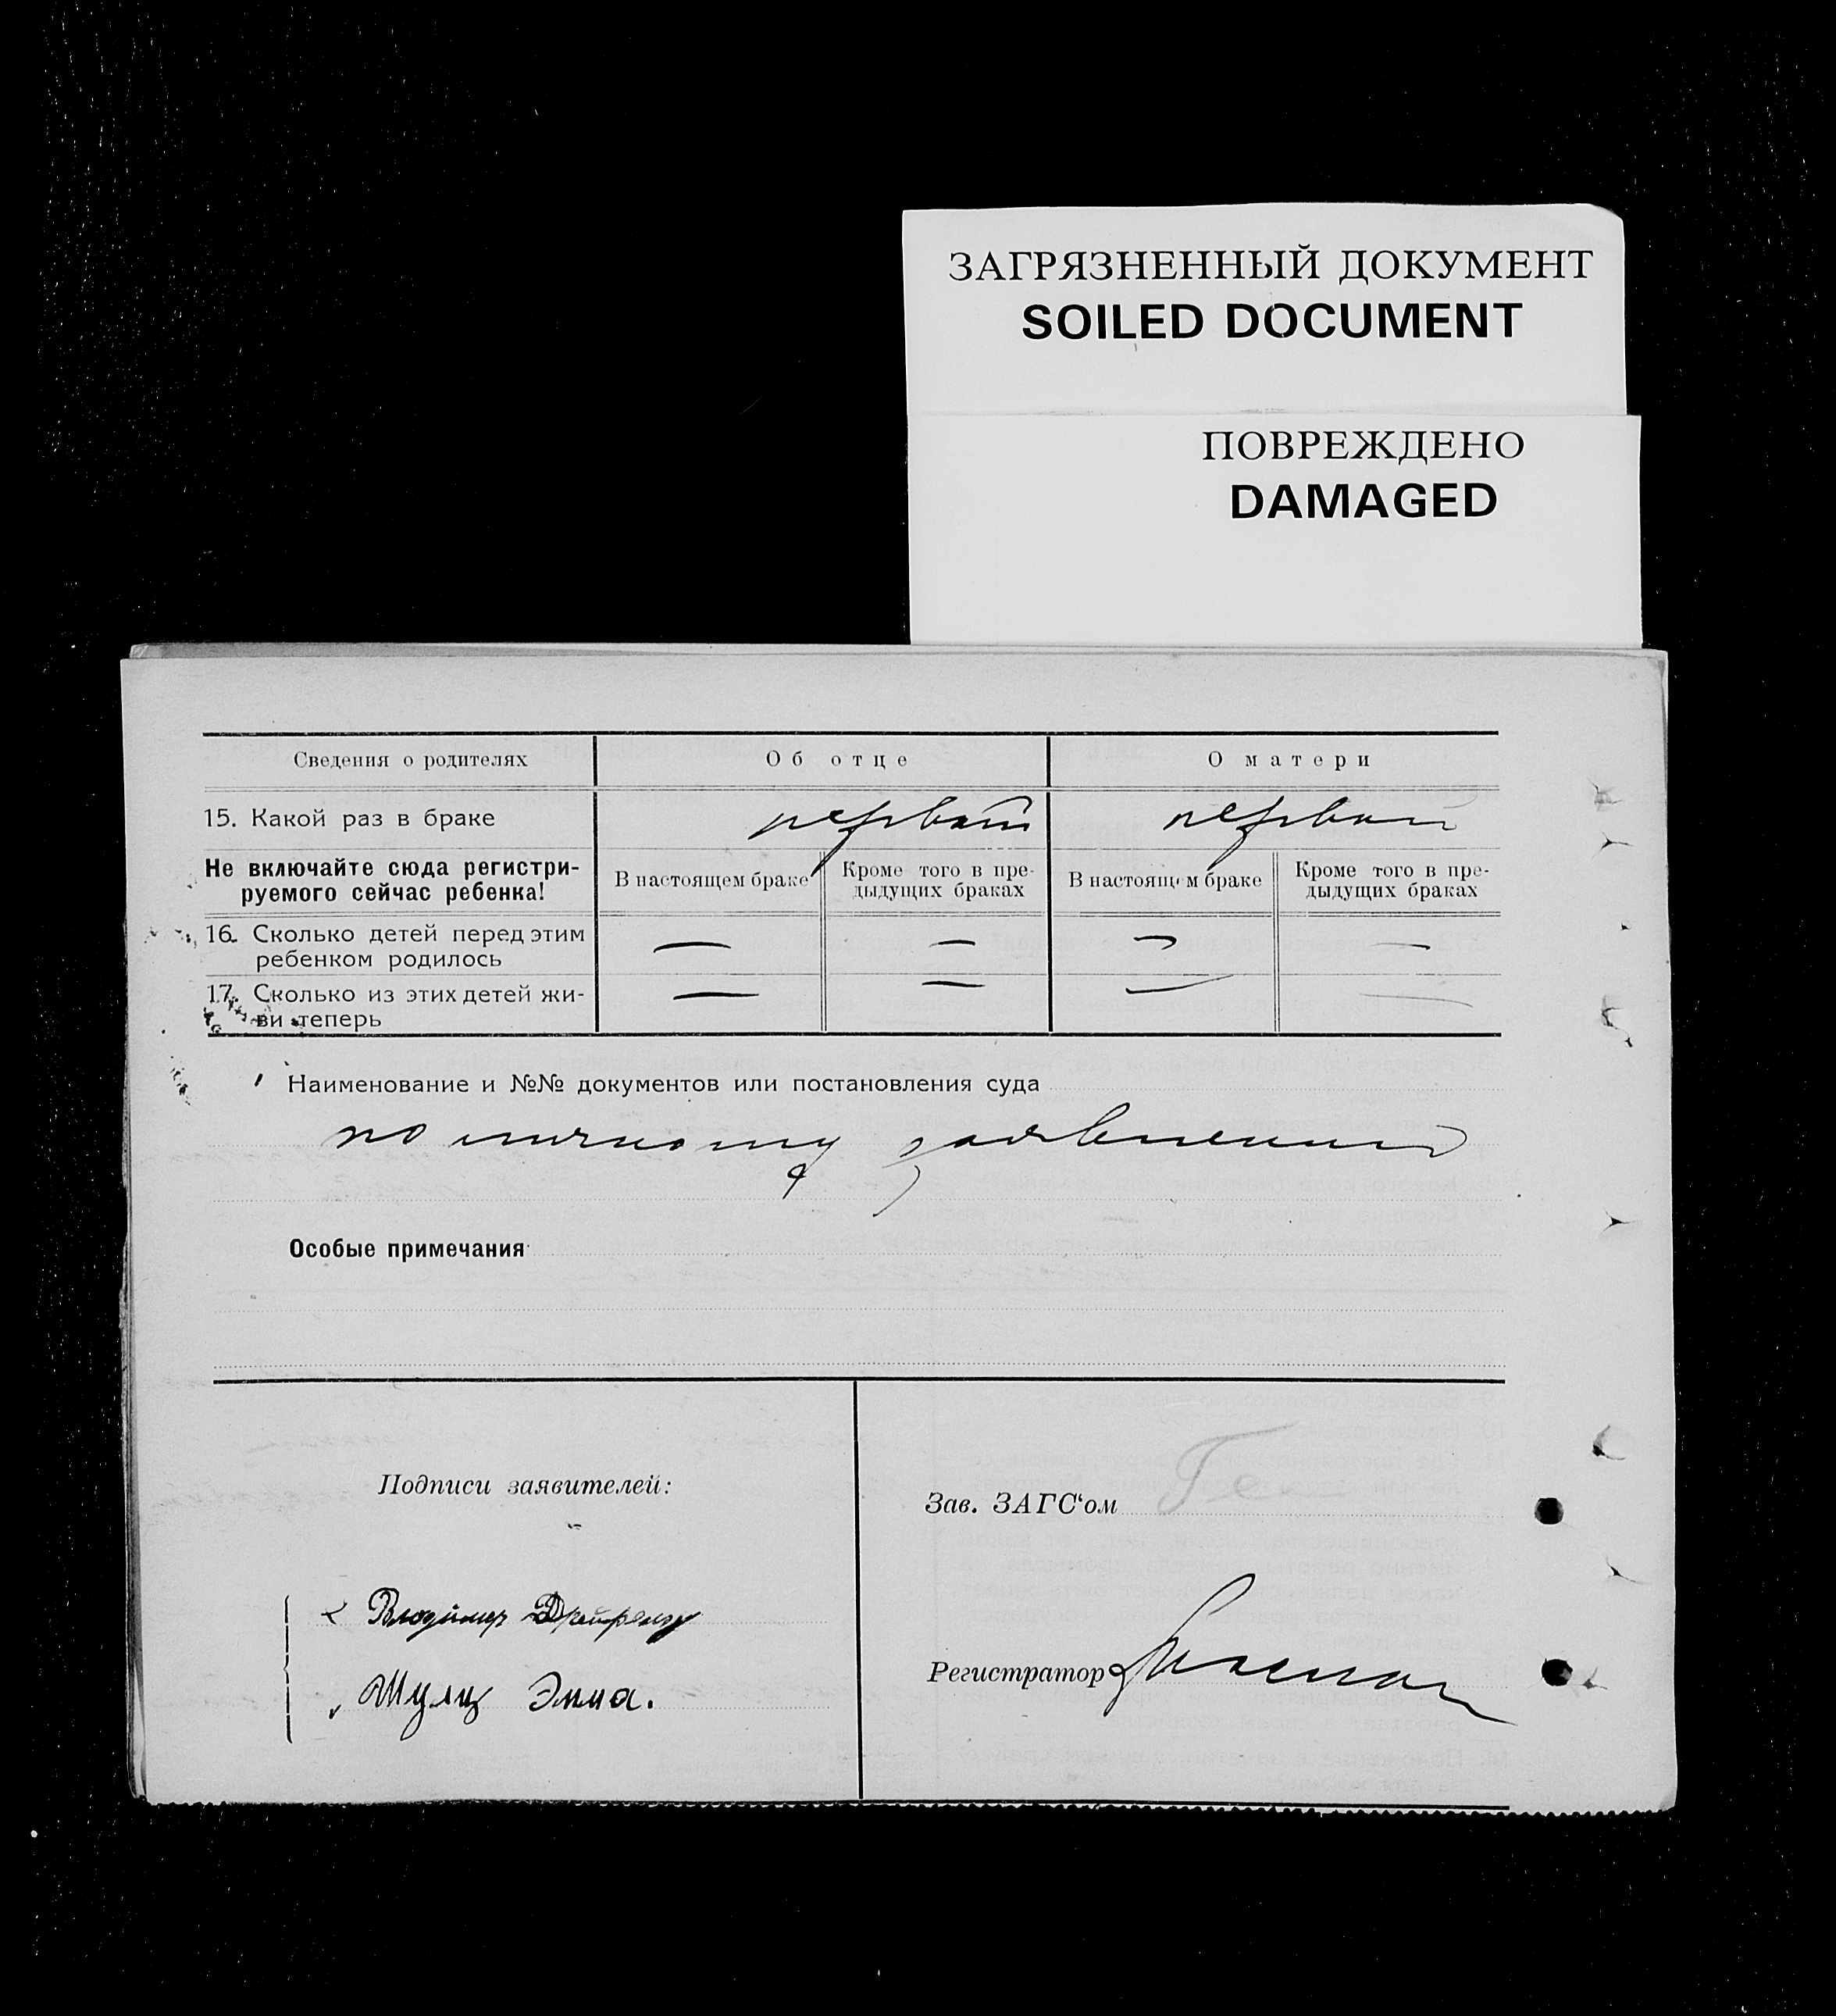 ЗАГРЯЗНЕННЫЙ ДОКУМЕНТ
SOILED DOCUMENT
ПОВРЕЖДЕНО
DAMAGED
Сведения о родителях Об отце О матери
15. Какой раз в браке первый первый
Не включайте сюда регистри-
руемого сейчас ребенка!
В настоящем браке
Кроме того в пре-
дыдущих браках
В настоящем браке
Кроме того в пре-
дыдущих браках
16. Сколько детей перед этим
ребенком родилось — — — —
17. Сколько из этих детей жи-
ви теперь — — — —
Наименование и №№ документов или постановления суда
по личному заявлению
Особые примечания
Подписи заявителей:
Владимер
Шульц Эмма.
Зав. ЗАГС‘ом Ге
Регистратор